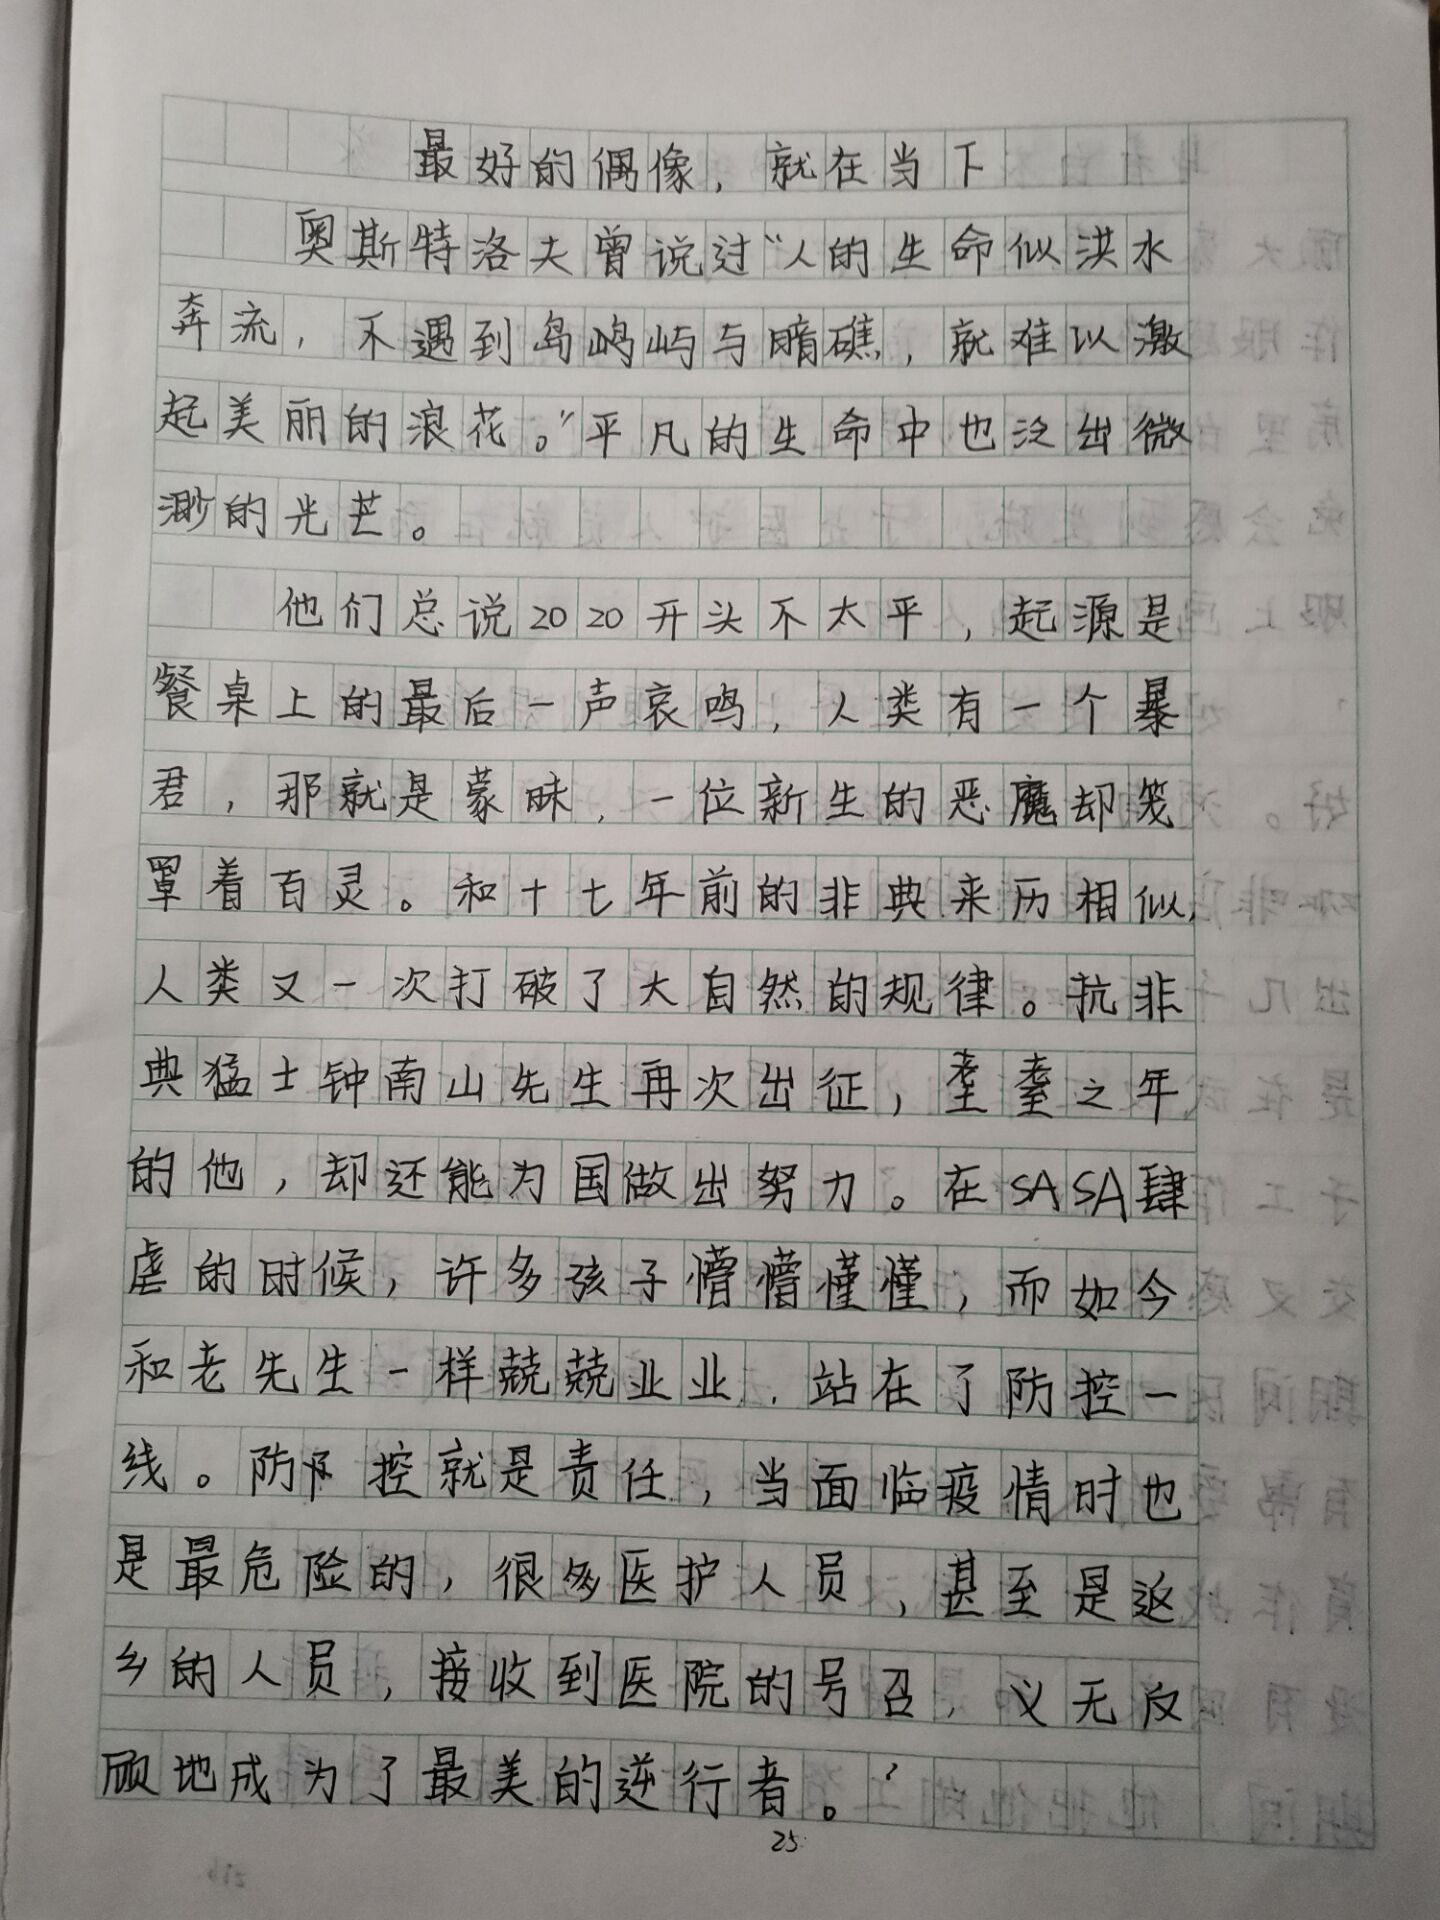 最好的偶像，就在当下
奥斯特洛夫曾说过“人的生命似洪水
奔流，不遇到岛屿与暗礁，就难以激
起美丽的浪花。”平凡的生命中也泛出微
渺的光芒。
他们总说2020开头不太平，起源是
餐桌上的最后一声哀鸣，人类有一个暴
君，那就是蒙昧，一位新生的恶魔却笼
罩着百灵。和十七年前的非典来历相似，
人类又一次打破了大自然的规律。抗非
典猛士钟南山先生再次出征，耋耋之年
的他，却还能为国做出努力。在SASA肆
虐的时候，许多孩子懵懵懂懂，而如今
和老先生一样兢兢业业，站在了防控一
线。防控就是责任，当面临疫情时也
是最危险的，很多医护人员，甚至是返
乡的人员，接收到医院的号召，义无反
顾地成为了最美的逆行者。
25